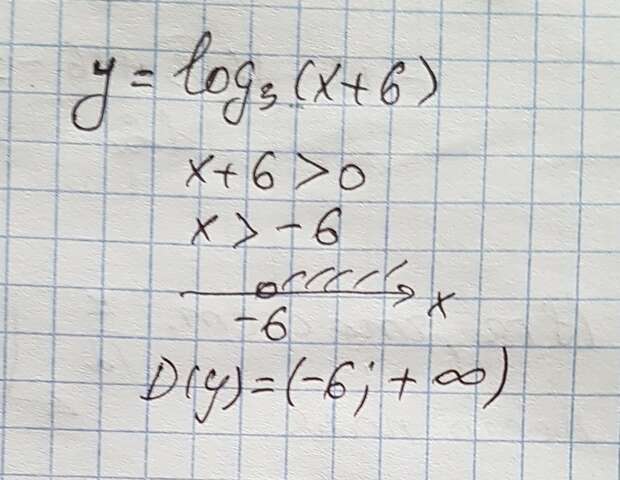 y = log₃(x+6)
x+6>0
x>-6
-6 x
D(y)=(-6;+∞)